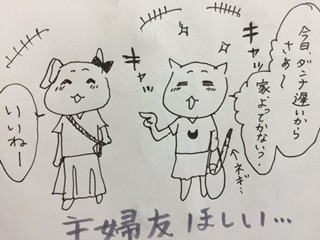 今日、ダンナ遅いから
さぁ〜
家、よってかない？
キャッ
キャッ
いいねー
ネギ…
主婦友ほしい…